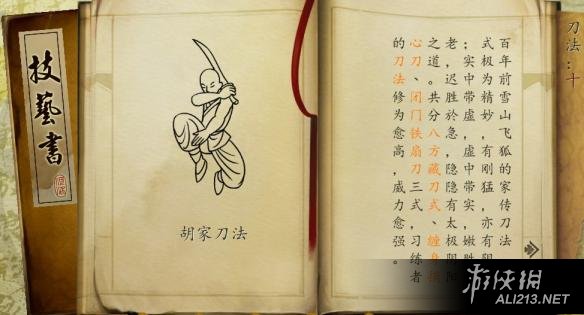 技藝書
胡家刀法
刀法：十
百年前雪山飞狐的家传刀法
式极为精妙，有刚猛，亦有阴
；实中带虚，虚中带实，嫩胜
老，迟胜於急，隐隐有太极阴阳
之道。共分八方藏刀式、缠身
心刀、闭门铁扇刀三式，习练者
的刀法修为愈高，威力愈强。
游侠网
ALI213.NET